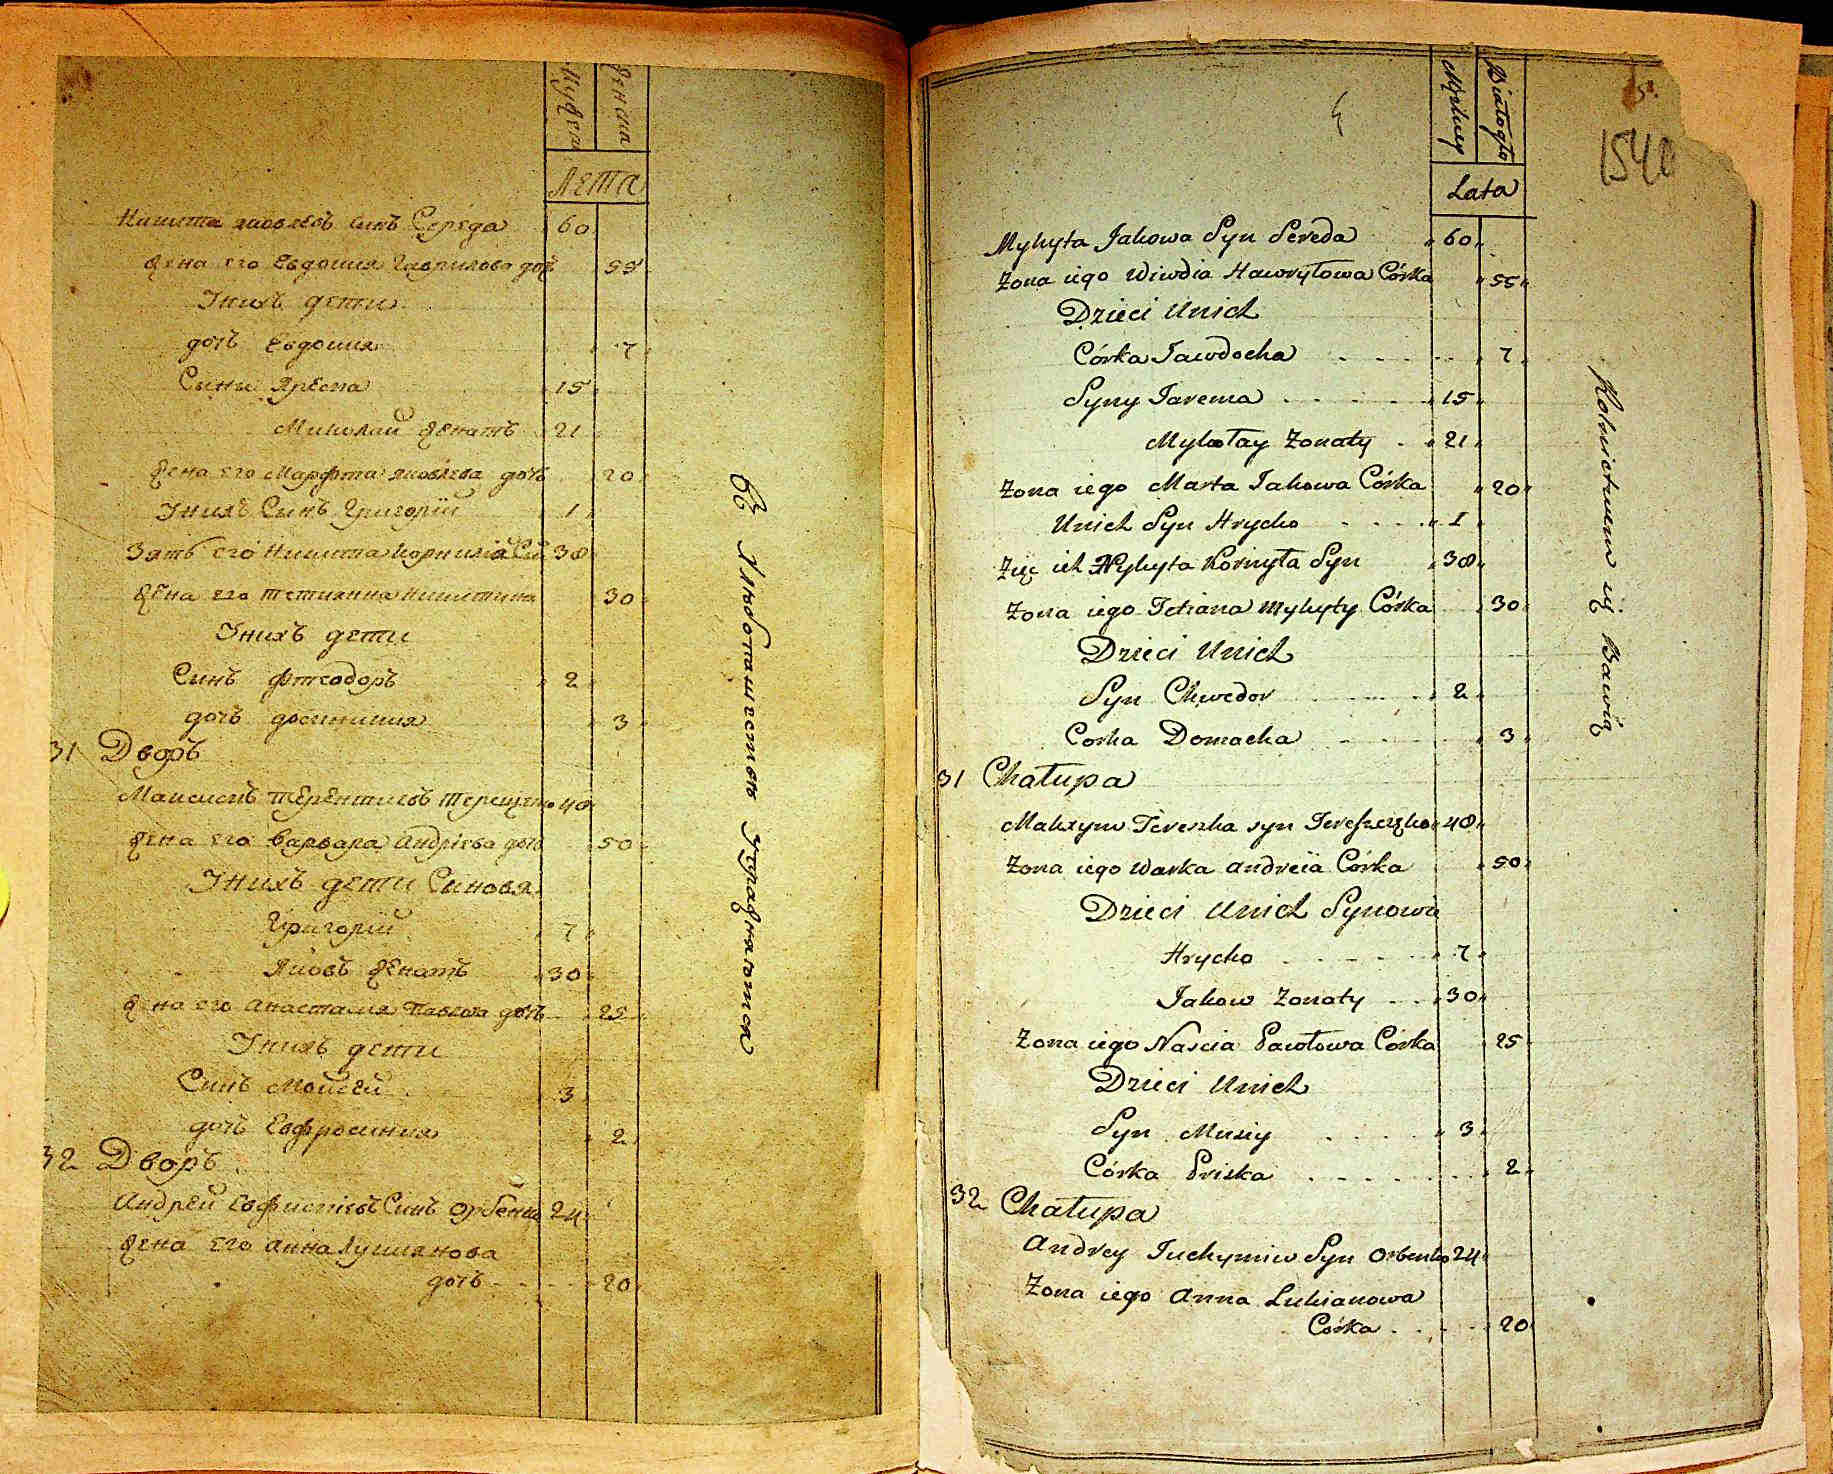 Мужеска
Женска
ЛЕТА
Никита яковлевъ синъ Середа 60
жена его Евдокия Гаврилова доч 55
Унихъ дети
дочъ Евдокия 7
Сыны Ярема 15
Миколай женатъ 21
жена его Марфта яковлева дочъ 20
Унихъ Синъ Григорий 1
Зять его Никита Корнилія Си 38
жена его тетиянна Никитина 30
Унихъ дети
Синъ фтеодоръ 2
дочъ 3
31 Дворъ
Максимъ терентиевъ терещенко 48
жена его варвара Андріева дочъ 50
Унихъ дети Синовя
Григорий 7
Яковъ женатъ 30
жена его анастасия Павлова дочъ 25
Унихъ дети
Синъ Мойсей 3
дочъ Евфросиния 2
32 Дворъ
Андрей Евфимиевъ Синъ орбенко 24
жена его анна Лукиянова
дочъ 20
въ Хлебопашествѣ упражняются
1540
Męskiey
Białogło
Lata
Mykyta Jakowa Syn Sereda 60
Żona iego Wiwdia Hawryłowa Córka 55
Dzieci Unich
Córka Jawdocha 7
Syny Jarema 15
Mykołay Żonaty 21
Żona iego Marta Jakowa Córka 20
Unich Syn Hrycko 1
Zięc ich Mykyta Kornyła Syn 38
Żona iego Tetiana Mykyty Córka 30
Dzieci Unich
Syn Chwedor 2
Corka Domacha 3
31 Chałupa
Maksym Tereszka syn Tereszczęko 48
Żona iego Warka Andreia Córka 50
Dzieci Unich Synowie
Hrycko 7
Jakow Żonaty 30
Żona iego Nascia Pawłowa Córka 25
Dzieci Unich
Syn Musiy 3
Córka Priska 2
32 Chałupa
Andrey Juchymiw Syn Orbenko 24
Żona iego Anna Lukianowa
Córka 20
Rolnictwem się Bawią